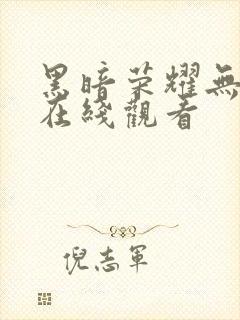 黑暗荣耀無
在綫觀看
倪志軍